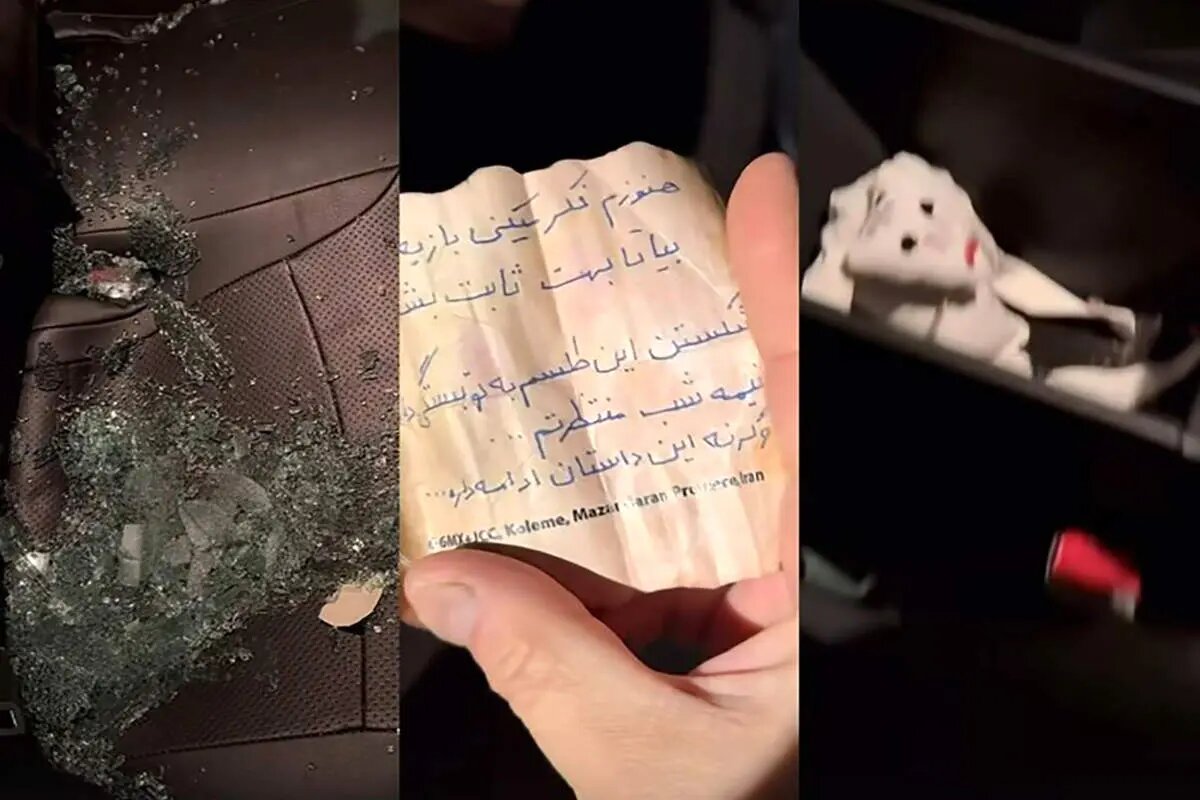 هنوزم فکر میکنی بازیه
بیا تا بهت ثابت بشه
شکستن این طلسم به تو بستگی
نیمه شب منتظرتم ...
وگرنه این داستان ادامه داره...
6MX+JCC, Koleme, Mazandaran Province, Iran